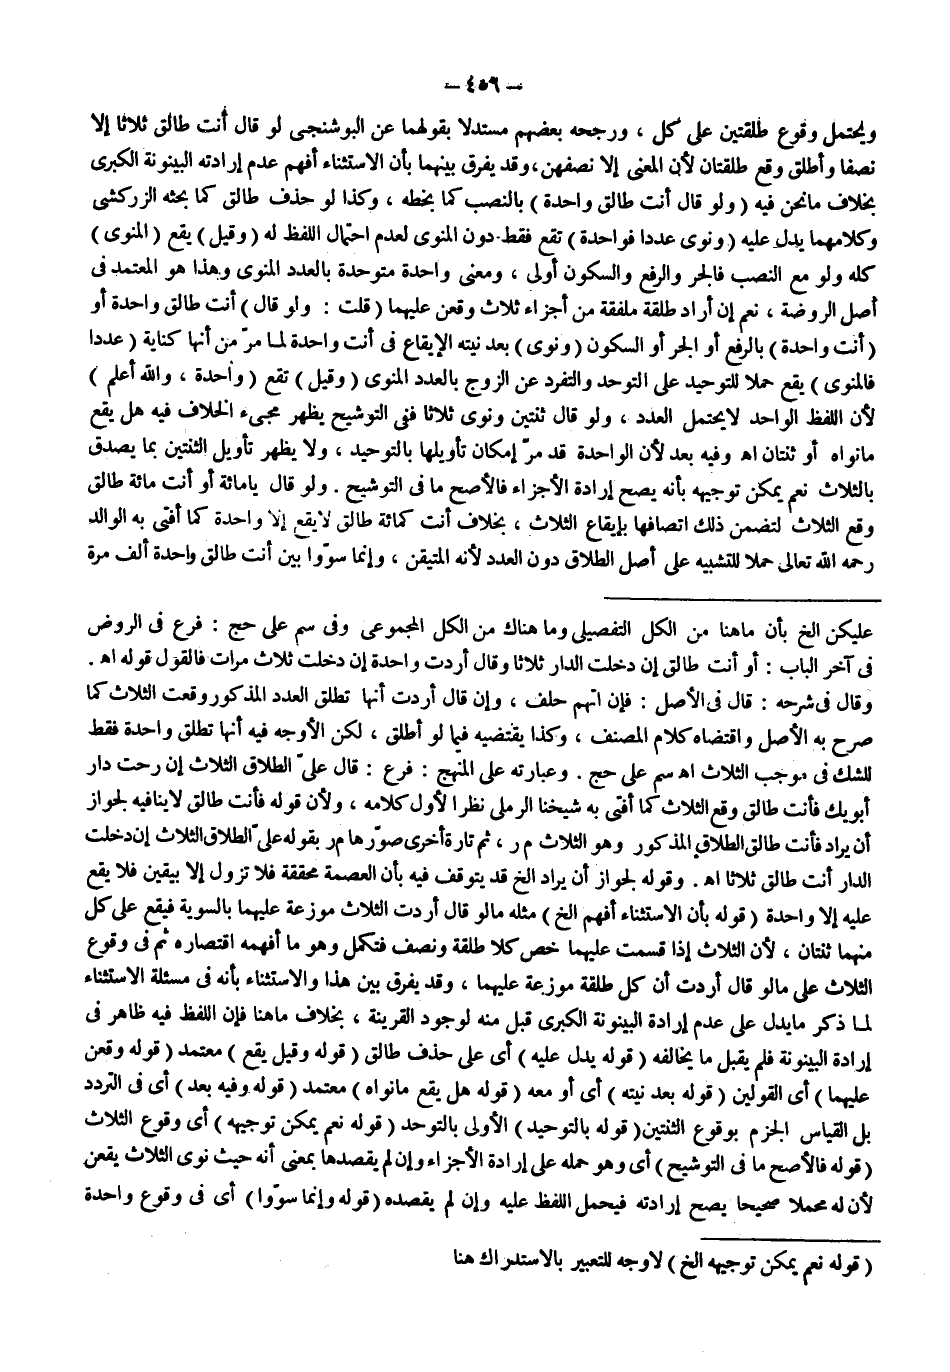 - ٤٥٦ -
ويحتمل وقوع طلقتين على كل ، ورجحه بعضهم مستدلا بقولهما عن البوشنجى لو قال أنت طالق ثلاثا إلا
نصفا وأطلق وقع طلقتان لأن المعنى إلا نصفهن، وقد يفرق بينهما بأن الاستثناء أفهم عدم إرادته البينونة الكبرى
بخلاف مانحن فيه ( ولو قال أنت طالق واحدة ) بالنصب كما بخطه ، وكذا لو حذف طالق كما بحثه الزركشى
وكلامهما يدل عليه ( ونوى عددا فواحدة ) تقع فقط دون المنوى لعدم احتمال اللفظ له ( وقيل ) يقع ( المنوى )
كله ولو مع النصب فالجر والرفع والسكون أولى ، ومعنى واحدة متوحدة بالعدد المنوى وهذا هو المعتمد فى
أصل الروضة ، نعم إن أراد طلقة ملفقة من أجزاء ثلاث وقعن عليهما ( قلت : ولو قال ) أنت طالق واحدة أو
( أنت واحدة ) بالرفع أو الجر أو السكون ( ونوى ) بعد نيته الإيقاع فى أنت واحدة لما مرّ من أنها كناية ( عددا
فالمنوى ) يقع حملا للتوحيد على التوحد والتفرد عن الزوج بالعدد المنوى ( وقيل ) تقع ( واحدة ، والله أعلم )
لأن اللفظ الواحد لايحتمل العدد ، ولو قال ثنتين ونوى ثلاثا ففى التوشيح يظهر مجىء الخلاف فيه هل يقع
مانواه أو ثنتان اه وفيه بعد لأن الواحدة قد مرّ إمكان تأويلها بالتوحيد ، ولا يظهر تأويل الثنتين بما يصدق
بالثلاث نعم يمكن توجيهه بأنه يصح إرادة الأجزاء فالأصح ما فى التوشيح . ولو قال يامائة أو أنت مائة طالق
وقع الثلاث لتضمن ذلك اتصافها بإيقاع الثلاث ، بخلاف أنت كمائة طالق لايقع إلا واحدة كما أفتى به الوالد
رحمه الله تعالى حملا للتشبيه على أصل الطلاق دون العدد لأنه المتيقن ، وإنما سوّوا بين أنت طالق واحدة ألف مرة
عليكن الخ بأن ماهنا من الكل التفصيلى وما هناك من الكل المجموعى وفى سم على حج : فرع فى الروض
فى آخر الباب : أو أنت طالق إن دخلت الدار ثلاثا وقال أردت واحدة إن دخلت ثلاث مرات فالقول قوله اه .
وقال فى شرحه : قال فى الأصل : فإن اتهم حلف ، وإن قال أردت أنها تطلق العدد المذكور وقعت الثلاث كما
صرح به الأصل واقتضاه كلام المصنف ، وكذا يقتضيه فيما لو أطلق ، لكن الأوجه فيه أنها تطلق واحدة فقط
للشك فى موجب الثلاث اه سم على حج . وعبارته على المنهج : فرع : قال علىّ الطلاق الثلاث إن رحت دار
أبويك فأنت طالق وقع الثلاث كما أفتى به شيخنا الرملى نظرا لأول كلامه ، ولأن قوله فأنت طالق لاينافيه لجواز
أن يراد فأنت طالق الطلاق المذكور وهو الثلاث م ر ، ثم تارة أخرى صوّرها م ر بقوله علىّ الطلاق الثلاث إن دخلت
الدار أنت طالق ثلاثا اه . وقوله لجواز أن يراد الخ قد يتوقف فيه بأن العصمة محققة فلا تزول إلا بيقين فلا يقع
عليه إلا واحدة ( قوله بأن الاستثناء أفهم الخ ) مثله مالو قال أردت الثلاث موزعة عليهما بالسوية فيقع على كل
منهما ثنتان ، لأن الثلاث إذا قسمت عليهما خص كلا طلقة ونصف فتكمل وهو ما أفهمه اقتصاره ثم فى وقوع
الثلاث على مالو قال أردت أن كل طلقة موزعة عليهما ، وقد يفرق بين هذا والاستثناء بأنه فى مسئلة الاستثناء
لما ذكر مايدل على عدم إرادة البينونة الكبرى قبل منه لوجود القرينة ، بخلاف ماهنا فإن اللفظ فيه ظاهر فى
إرادة البينونة فلم يقبل ما يخالفه ( قوله يدل عليه ) أى على حذف طالق ( قوله وقيل يقع ) معتمد ( قوله وقعن
عليهما ) أى القولين ( قوله بعد نيته ) أى أو معه ( قوله هل يقع مانواه ) معتمد ( قوله وفيه بعد ) أى فى التردد
بل القياس الجزم بوقوع الثنتين ( قوله بالتوحيد ) الأولى بالتوحد ( قوله نعم يمكن توجيهه ) أى وقوع الثلاث
( قوله فالأصح ما فى التوشيح ) أى وهو حمله على إرادة الأجزاء وإن لم يقصدها بمعنى أنه حيث نوى الثلاث يقعن
لأن له محملا صحيحا يصح إرادته فيحمل اللفظ عليه وإن لم يقصده ( قوله وإنما سوّوا ) أى فى وقوع واحدة
( قوله نعم يمكن توجيهه الخ ) لاوجه للتعبير بالاستدراك هنا